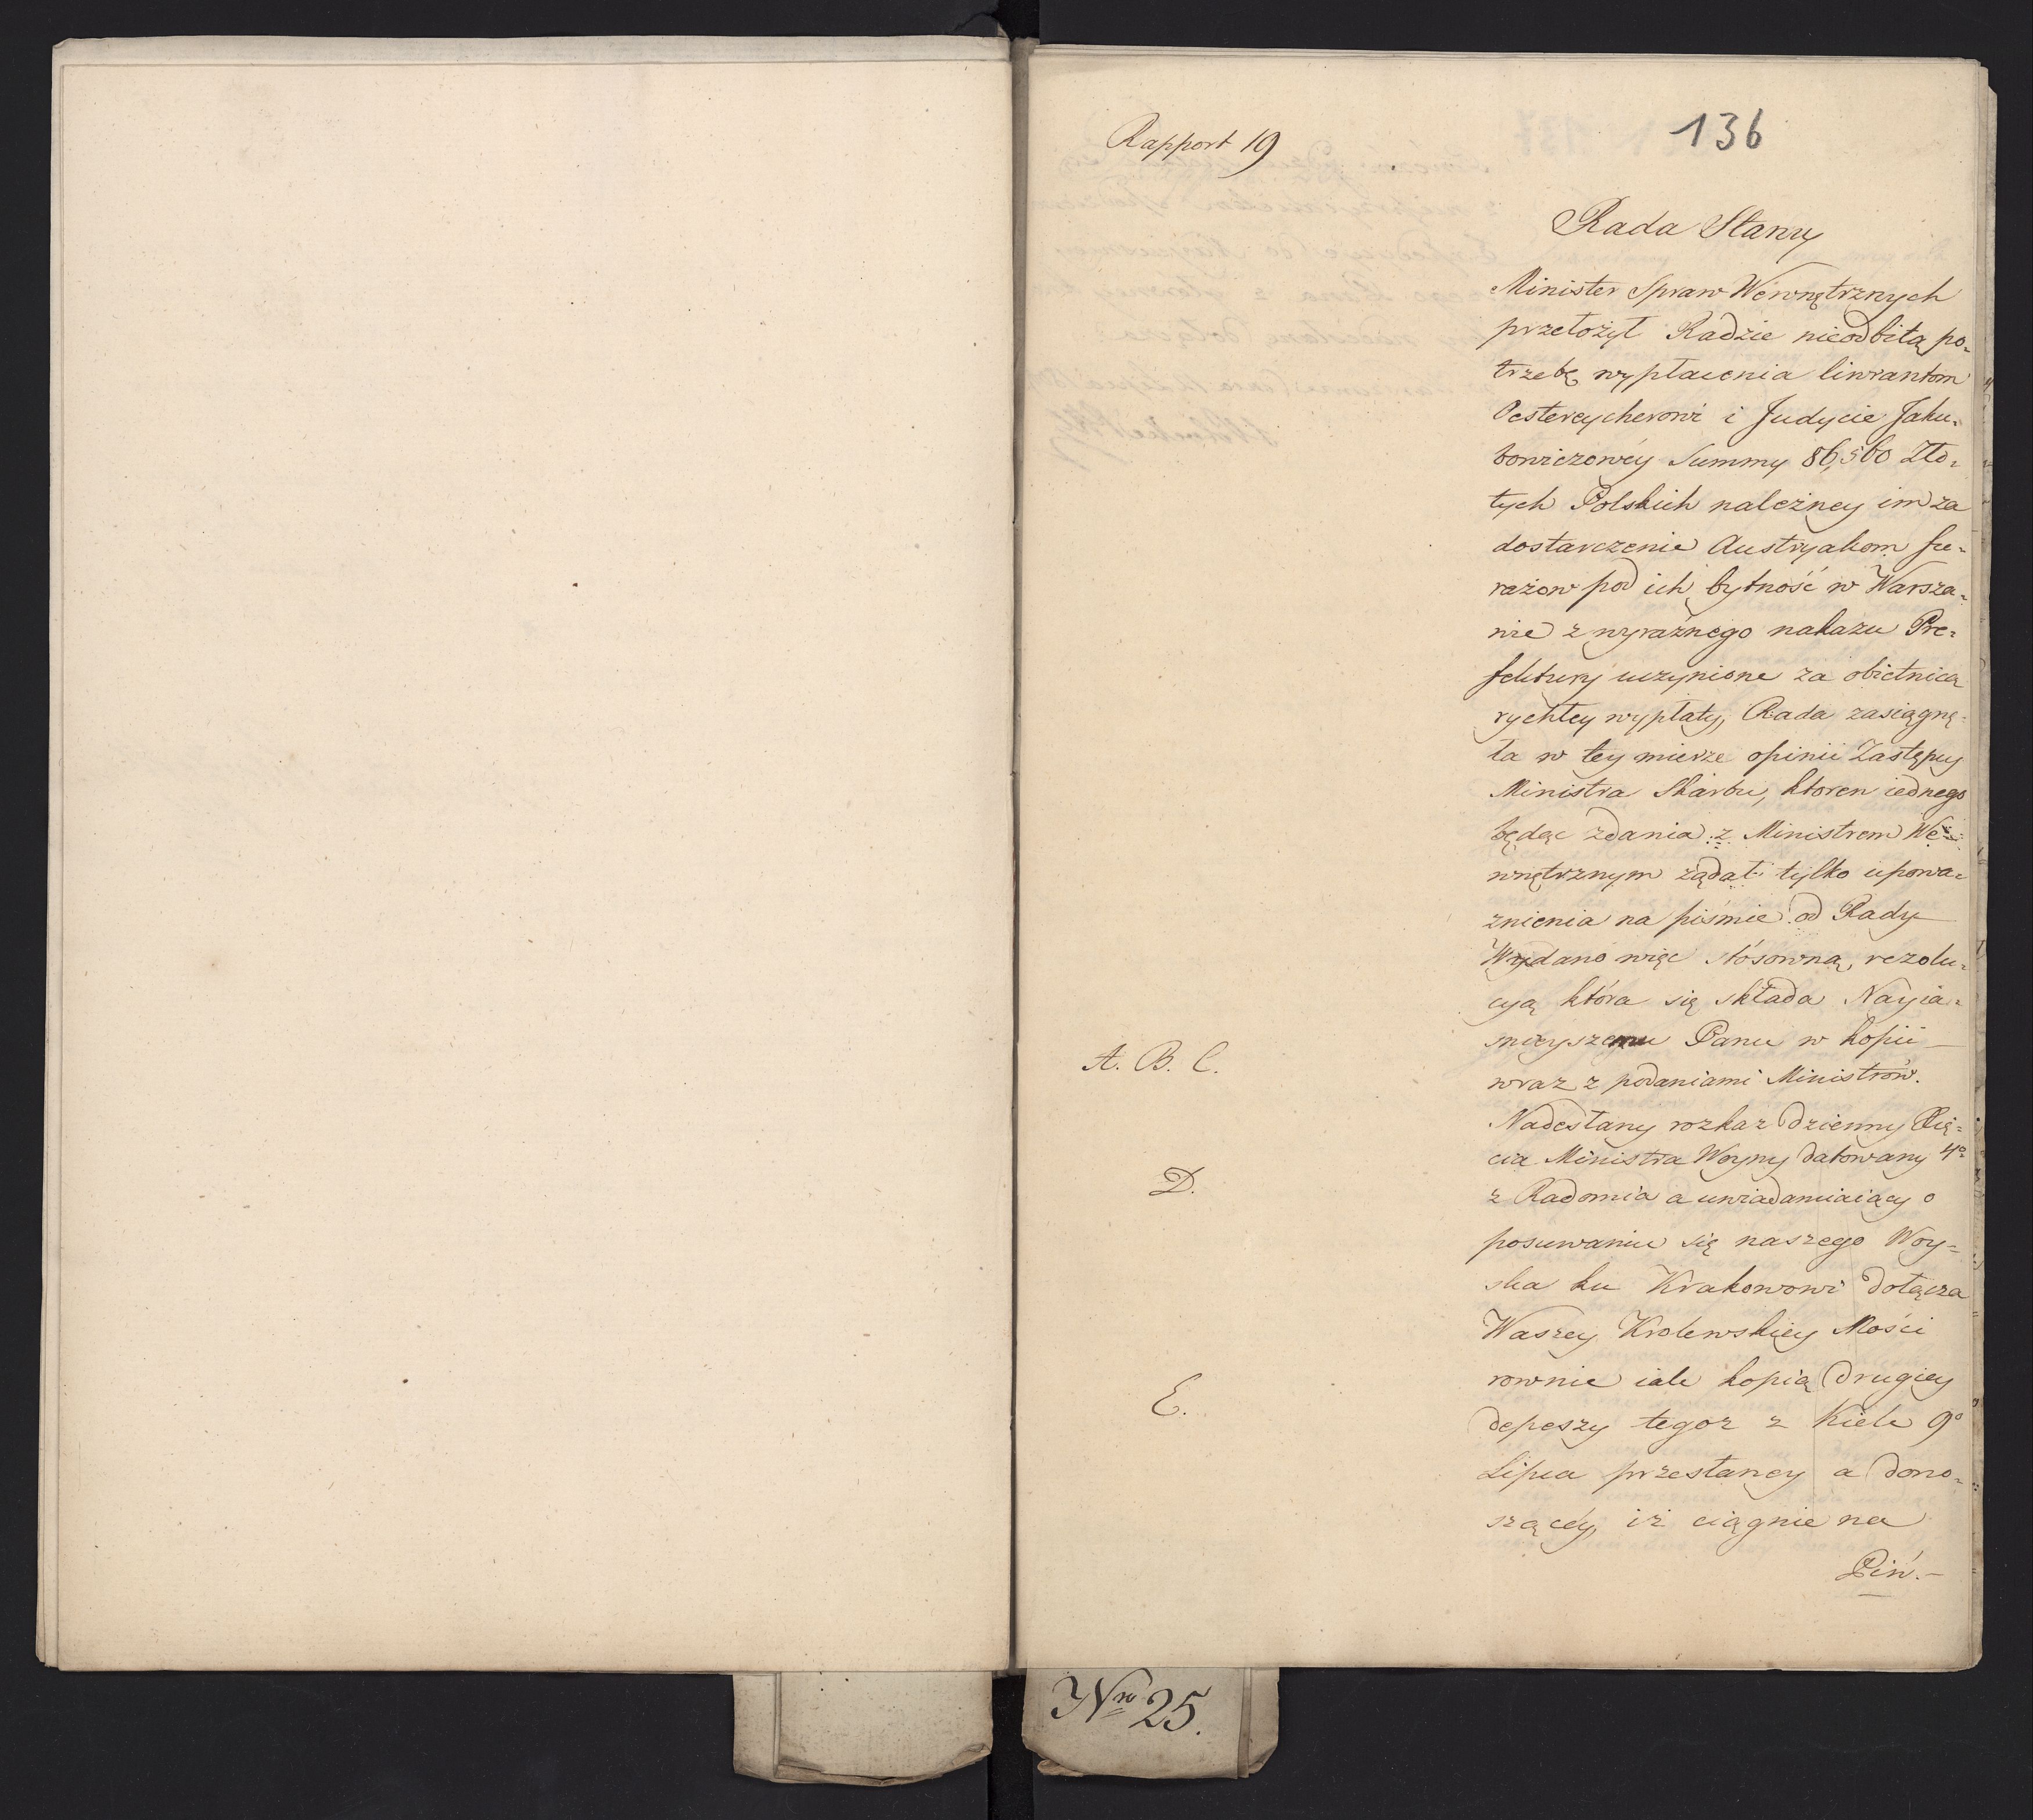 Rapport 19
136
Rada Stanu
Minister Spraw Wewnętrznych
przełożył Radzie nieodbitą po-
trzebę wypłacenia liwrantom
Oestereycherowi i Judycie Jaku-
bowiczowéy Summy 86,560 Zło-
tych Polskich należney im za
dostarczenie Austryakom fu-
rażow pod ich bytność w Warsza-
wie z wyraźnego nakazu Pre-
fektury uczynione za obietnicą
rychłey wypłaty, Rada zasiągnę-
ła w tey mierze opinii Zastępcy
Ministra Skarbu, ktoren iednego
będąc zdania z Ministrem We-
wnętrznym żądał tylko upowa-
żnienia na piśmie od Rady
Wydano więc stósowną rezolu-
cyą która się składa Nayia-
śnieyszemu Panu w kopii
wraz z podaniami Ministrów.
A. B. C.
Nadesłany rozkaz dzienny Xię-
cia Ministra Woyny datowany 4º
D.
z Radomia a uwiadamiaiący o
posuwaniu się naszego Woy-
ska ku Krakowowi dołącza
Waszey Krolewskiey Mości
rownie iak kopią drugiey
E.
depeszy tegoz z Kielc 9º
Lipca przesłaney a dono-
szącéy, iż ciągnie na
Piń.-
Nro 25.